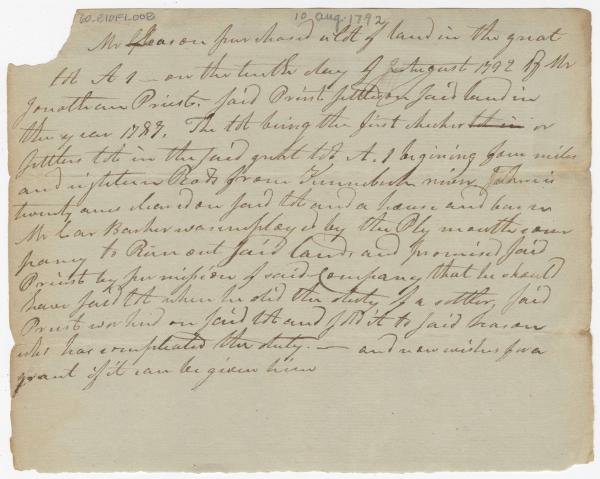 60.210F1.002
10 aug. 1792
Mr Season purchased a lot of land in the great
lot A 1 — on the tenth day of August 1792 of Mr
Jonathan Priest. said Priest settled on said land in
the year 1787. The lot being the first or
settlers lots in the said great lot A. 1 begining four miles
and eighteen Rods from Kennebeck river, thare is
twenty acres cleared on said lot and a house and barn
Mr Barker was imployed by the Plymouth com
pany to Run out said land, and promised said
Priest by permission of said Company that he should
have said lot when he did the duty of a settler, said
Priest worked on said lot and sold it to said Season
who has compleated the duty. — and now wishes for a
grant if it can be given him